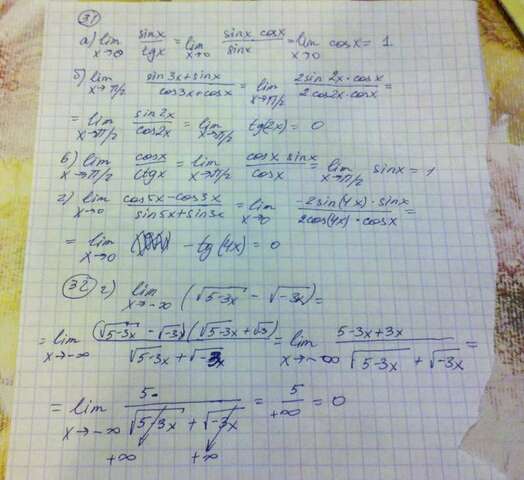 31
а) lim x→0 sinx/tgx = lim x→0 sinx cosx/sinx = lim x→0 cosx = 1.
б) lim x→π/2 sin3x+sinx/cos3x+cosx = lim x→π/2 2sin2x·cosx/2cos2x·cosx =
= lim x→π/2 sin2x/cos2x = lim x→π/2 tg(2x) = 0
в) lim x→π/2 cosx/ctgx = lim x→π/2 cosx sinx/cosx = lim x→π/2 sinx = 1
г) lim x→0 cos5x-cos3x/sin5x+sin3x = lim x→0 -2sin(4x)·sinx/2cos(4x)·cosx =
= lim x→0 -tg(4x) = 0
32 г) lim x→-∞ (√5-3x - √-3x) =
= lim x→-∞ (√5-3x - √-3x)(√5-3x + √3)/√5-3x + √-3x = lim x→-∞ 5-3x+3x/√5-3x + √-3x =
= lim x→-∞ 5/√5-3x + √-3x = 5/+∞ = 0
+∞ +∞